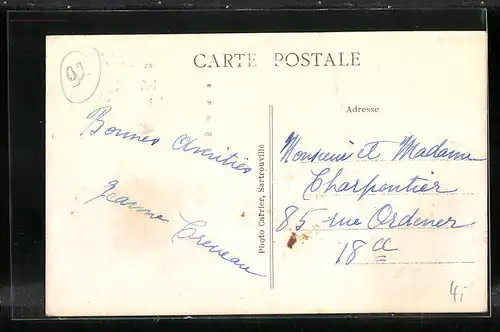 92
CARTE POSTALE
Adresse
Bonnes Amitiés
Jeanne
Photo Cafrier, Sartrouville
Monsieur et Madame
Charpentier
85 rue Ordener
18 ee
4,-